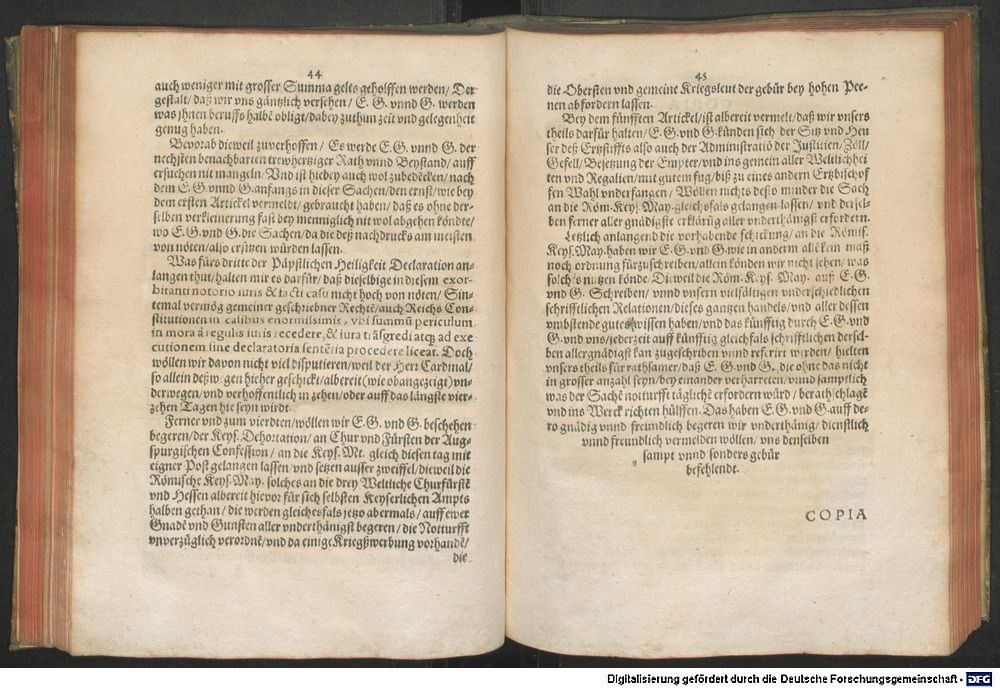 44
auch weniger mit grosser Summa gelts geholffen werden/ Der
gestalt/ daß wir vns gäntzlich versehen/ E. G. vnnd G. werden
was jhnen beruffs halbē obligt/ dabey zuthun zeit vnd gelegenheit
genug haben.
Bevorab dieweil zuverhoffen/ Es werde E. G. vnnd G. der
nechsten benachbarten trewhertziger Rath vnnd Beystand/ auff
ersuchen nit mangeln/ Vnd ist hiebey auch wol zubedēcken/ nach
dem E. G. vnnd G. anfangs in dieser Sachen/ den ernst/ wie bey
dem ersten Artickel vermeldt/ gebraucht haben/ daß es ohne der-
selben verkleinerung fast bey menniglich nit wol abgehen köndte/
wo E. G. vnd G. die Sachen/ da die deß nachdrucks am meisten
von nöten/ also ersitzen würden lassen.
Was fürs dritte der Päpstlichen Heiligkeit Declaration an-
langen thut/ halten wir es darfür/ daß dieselbige in diesem exor-
bitanti notorio iuris & facti casu nicht hoch von nöten/ Sin-
temal vermög gemeiner geschriebner Rechte/ auch Reichs Con-
stitutionen in casibus enormissimis, vbi summū periculum
in mora ā regulis iuris recedere, & iura trāsgredi atcq; ad exe
cutionem sine declaratoria sentētia procedere liceat. Doch
wöllen wir davon nicht viel disputieren/ weil der Herr Cardinal/
so allein deßwegen hieher geschickt/ albereit (wie obangezeigt) vn-
derwegen/ vnd verhoffentlich in zehen/ oder auff das längste vier-
zehen Tagen hie seyn wirdt.
Ferner vnd zum vierdten/ wöllen wir E. G. vnd G. beschehen
begeren/ der Keys. Dehortation/ an Chur vnd Fürsten der Aug-
spurgischen Confession/ an die Keys. Mt. gleich diesen tag mit
eigner Post gelangen lassen/ vnd setzen ausser zweiffel/ dieweil die
Römische Keys. May. solches an die drey Weltliche Churfürstē
vnd Hessen albereit hievor für sich selbsten Keyserlichen Ampts
halben gethan/ die werden gleichesfals jetzo abermals/ auff ewer
Gnadē vnd Gunsten aller vnderthänigst begeren/ die Notturfft
vnverzüglich verordnē/ vnd da einige Kriegßwerbung vorhandē/
die
45
die Obersten vnd gemeine Kriegsleut der gebür bey hohen Pee-
nen abfordern lassen.
Bey dem fünfften Artickel/ ist albereit vermelt/ daß wir vnsers
theils darfür halten/ E. G. vnd G. künden sich der Sitz vnd Heu
ser deß Ertzstiffts also auch der Administratiō der Justitien/ Zöll/
Gefell/ Besetzung der Empter/ vnd ins gemein aller Weltlichhei
ten vnd Regalien/ mit gutem fug/ biß zu eines andern Ertzbischof
fen Wahl vnderfangen/ Wöllen nichts desto minder die Sach
an die Röm. Keys. May. gleichsfals gelangen lassen/ vnd dersel-
ben ferner aller gnädigste erklärūg aller vnderthänigst erfordern.
Letzlich anlangend die vorhabende schickung/ an die Römis.
Keys. May. haben wir E. G. vnd G. wie in anderm alle kein maß
noch ordnung fürzuschreiben/ allein können wir nicht sehen/ was
solchs nutzen könde. Dieweil die Röm. Keys. May. auß E. G.
vnd G. Schreiben/ vnnd vnsern vielfältigen vnderschiedlichen
schrifftlichen Relationen/ dieses gantzen handels/ vnd aller dessen
vmbstende gutes wissen haben/ vnd das künfftig durch E. G. vnd
G. vnd vns/ jederzeit auff künfftig gleichsfals schrifftlichen dersel-
ben allergnädigst kan zugeschriben vnnd referirt werden/ hielten
vnsers theils für rathsamer/ daß E. G. vnd G. die ohne das nicht
in grosser anzahl seyn/ bey einander verharreten/ vnnd samptlich
was der Sachē notturfft täglichē erfordern würd/ berathschlagē
vnd ins Werck richten hülffen. Das haben E. G. vnd G. auff de-
ro gnädig vnnd freundlich begeren wir vnderthänig/ dienstlich
vnnd freundlich vermelden wöllen/ vns denselben
sampt vnnd sonders gebür
befehlendt.
COPIA
Digitalisierung gefördert durch die Deutsche Forschungsgemeinschaft - DFG